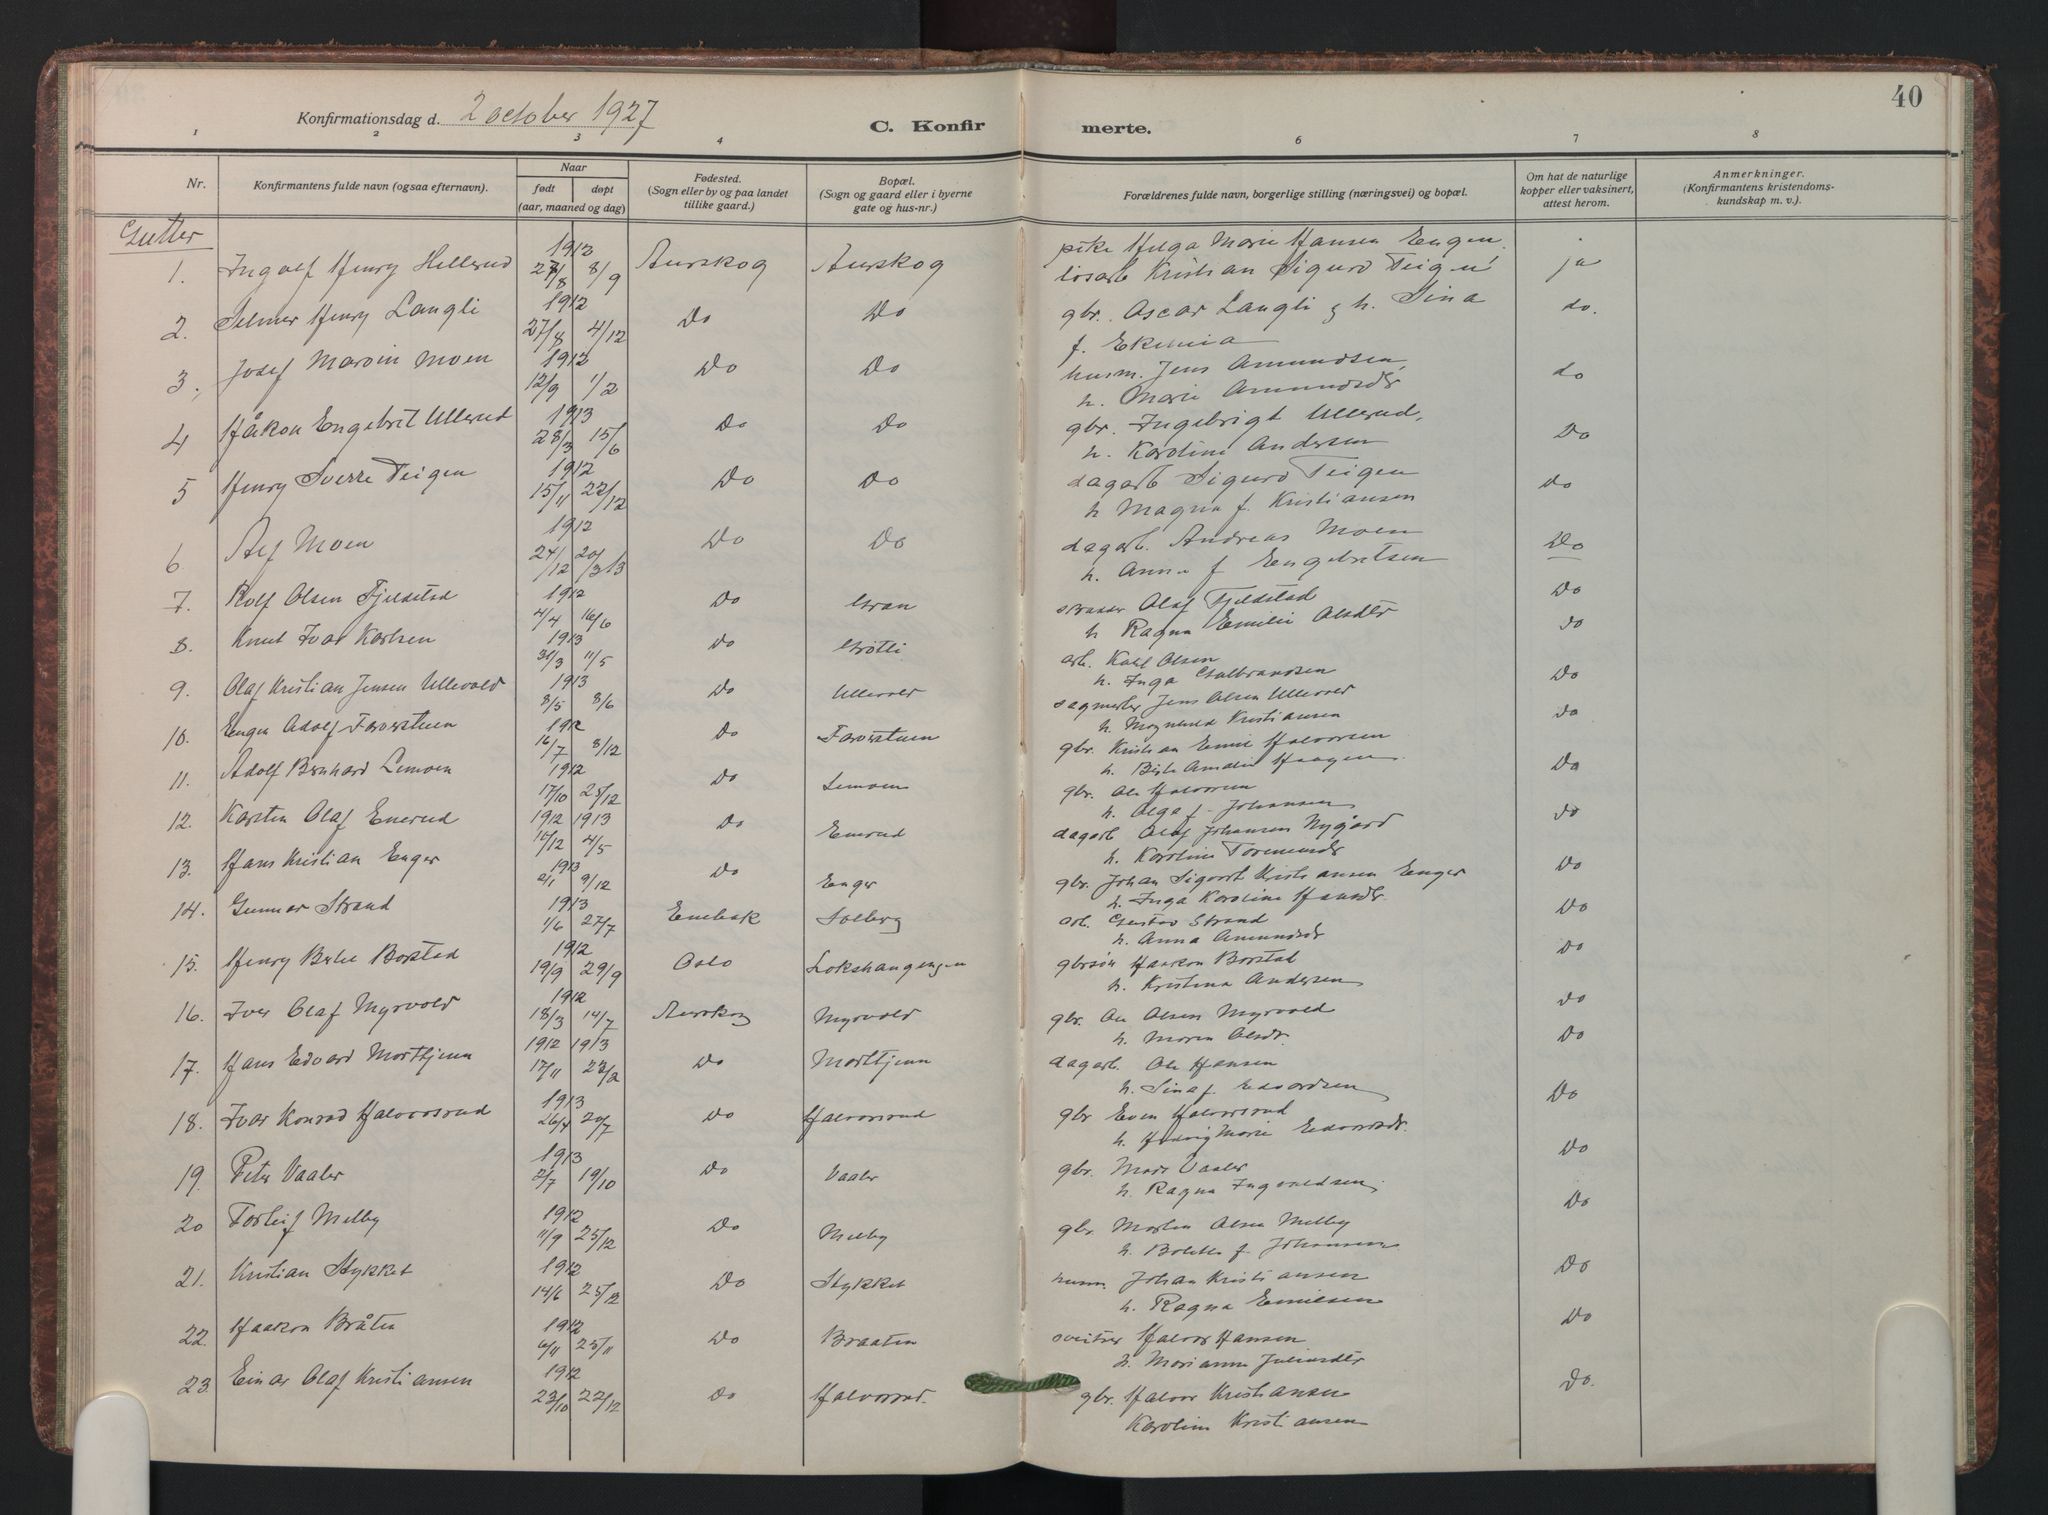 40
Konfirmationsdag d. 2 october 1927
C. Konfirmerte.
1 2 3 4 6 7 8
Nr.
Konfirmantens fulde navn (ogsaa efternavn).
Naar
født døpt
(aar, maaned og dag)
Fødested.
(Sogn eller by og paa landet
tillike gaard.)
Bopæl.
(Sogn og gaard eller i byerne
gate og hus-nr.)
Forældrenes fulde navn, borgerlige stilling (næringsvei) og bopæl.
Om hat de naturlige
kopper eller vaksinert,
attest herom.
Anmerkninger.
(Konfirmantens kristendoms-
kundskap m. v.).
Gutter
1. Ingolf Henry Hellerud 1913 27/8 8/9 Aurskog Aurskog pike Helga Marie Hansen Engen, ja
løsarb Kristian Sigurd Teigen
2. Selmer Henry Langli 1912 27/8 4/12 Do Do gbr. Oscar Langli & h. Sina do.
f.
3. Josef Marvin Moen 1912 12/9 1/2 Do Do husm. Jens Amundsen, do
h. Marie Amundsdr
4 Håkon Engebret Ullerud 1913 28/3 15/6 Do Do gbr. Ingebrigt Ullerud, Do
h. Karoline Andersen
5 Henry Sverre Teigen 1912 15/11 22/12 Do Do dagarb Sigurd Teigen Do
h Magna f. Kristiansen
6 Alf Moen 1912 24/12 20/3 13 Do Do dagarb. Andreas Moen Do
h. Anna f Engebretsen
7. Rolf Olsen Fjeldstad 1912 4/4 16/6 Do Gran Olaf Fjeldstad Do
h Ragna Emilie Olsdtr
8. Knut Ivar Karlsen 1913 31/3 11/5 Do Grøtli arb. Karl Olsen Do
h. Inga Gulbrandsen
9. Olaf Kristian Jensen Ullevold 1913 8/5 8/6 Do Ullevold sagmester Jens Olsen Ullevold Do
h. Magnhild Kristiansen
10. Enger Adolf Faverstuen 1912 16/7 8/12 Do Faverstuen gbr. Kristian Emil Halvorsen Do
h. Amalie Haagens.
11. Adolf Bernhard Lemoen 1912 17/10 25/12 Do Lemoen gbr. Ole Halvorsen Do
h. Olga f. Johansen
12. Karsten Olaf Enerud 1912 1913 10/12 4/5 Do Enerud dagarb Olaf Johansen Nygård Do
h. Karoline
13. Hans Kristian Enger 1913 2/1 9/12 Do Enger gbr. Johan Sigvart Kristiansen Enger Do
h. Inga Karoline Hansdr.
14. Gunnar Strand 1913 1/6 27/7 Enebak Solberg arb. Gustav Strand Do
h. Anna Amundsdr
15. Henry Borstad 1912 19/9 29/9 Oslo Lokshaugengen gbrsøn Haakon Borstad Do
h. Kristina Andersen
16. Iver Olaf Myrvold 1912 18/3 14/7 Aurskog Myrvold gbr. Ole Olsen Myrvold Do
h. Maren Olsdr.
17. Hans Edvard Morttjenn 1912 1913 17/11 23/2 Do Morttjenn dagarb. Ole Hansen Do
h. Sina f. Edvardsen
18. Ivar Konrad Halvorsrud 1913 26/4 20/7 Do Halvorsrud gbr Even Halvorsrud Do
h. Hedvig Marie Edvardsdr.
19. Peter Vaaler 1913 2/7 19/10 Do Vaaler gbr. Vaaler Do
h. Ragna Ingvaldsen
20 Torleif Melby 1912 11/9 25/12 Do Melby gbr. Martin Olsen Melby Do
h. Bolette f. Johansen
21. Kristian Stykket 1912 14/6 25/12 Do Stykket husm. Johan Kristiansen Do
h. Ragna Emilsen
22. Haakon Bråten 1912 6/11 25/11 Do Braaten sveitser Halvor Hansen Do
h. Marianne Juliusdtr
23. Einar Olaf Kristiansen 1912 23/10 22/12 Do Halvorsrud. gbr. Halvor Kristiansen Do.
Karoline Kristiansen